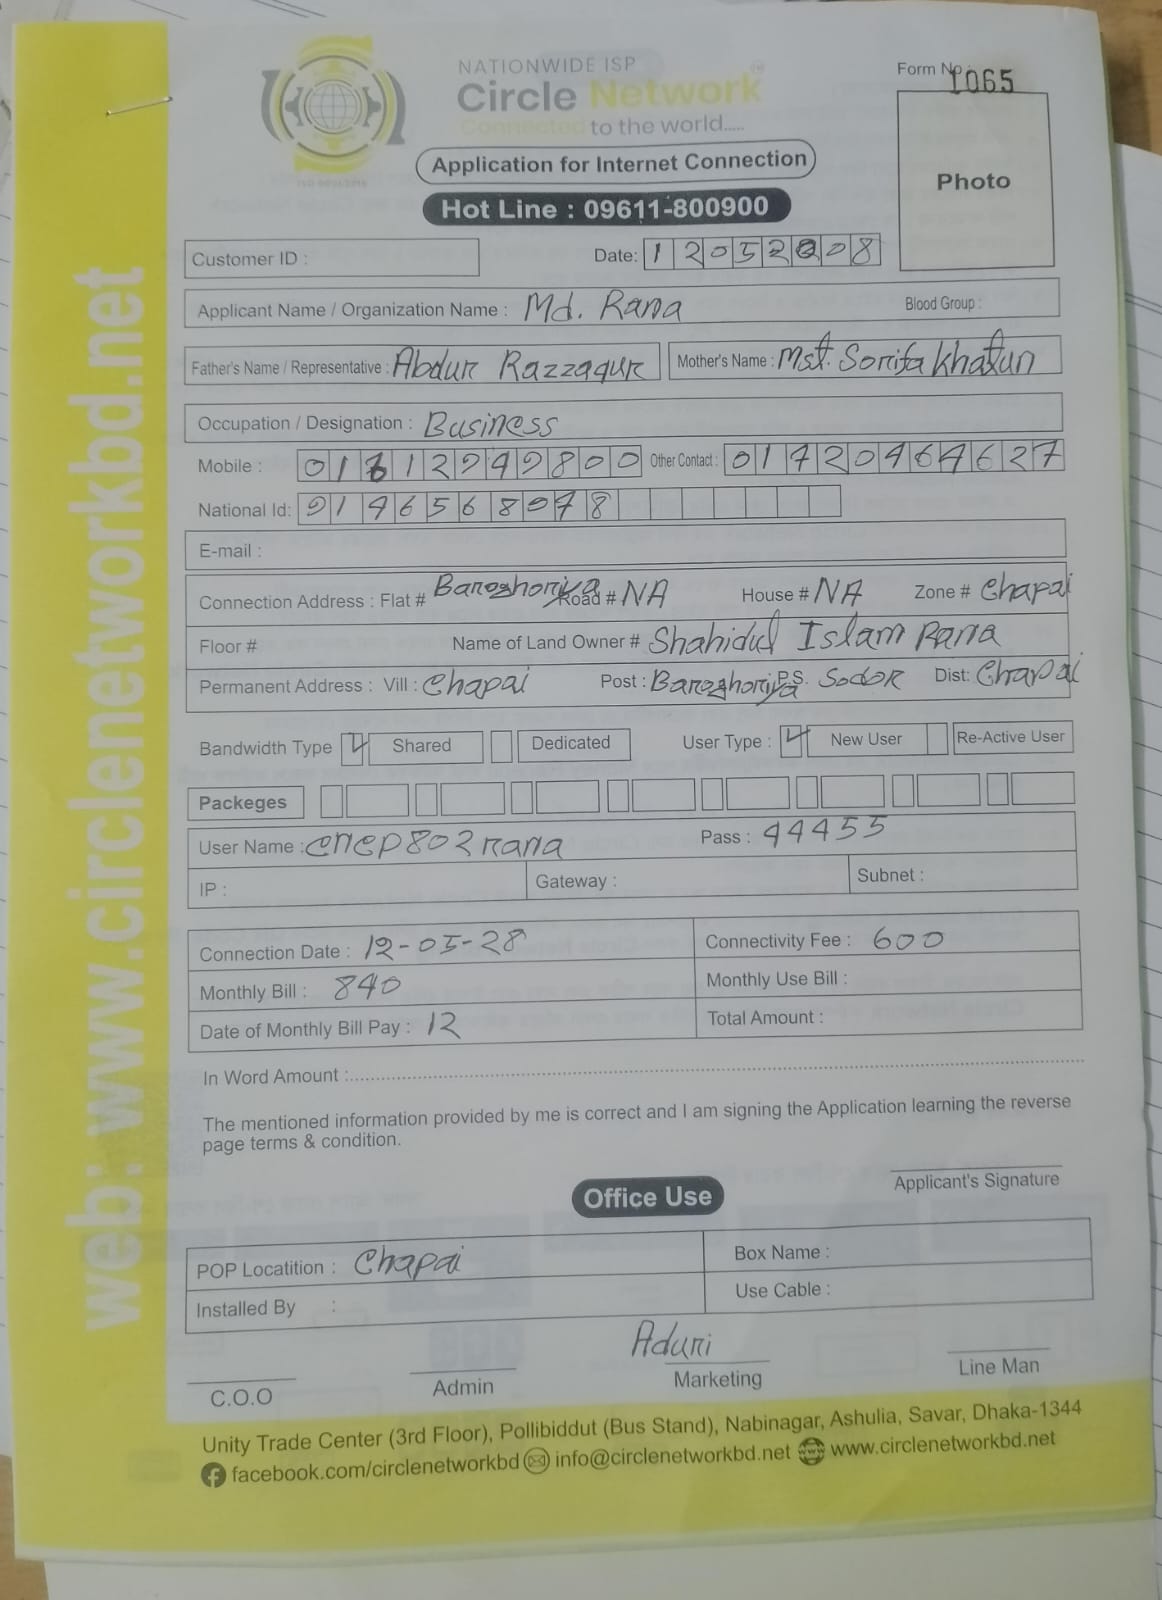 NATIONWIDE ISP
Circle Network
Connected to the world.....
Form No. 1065
Application for Internet Connection
Photo
Hot Line : 09611-800900
Customer ID :
Date: 1 2 0 5 2 0 0 8
Applicant Name / Organization Name : Md. Rana Blood Group :
Father's Name / Representative : Abdur Razzaqur Mother's Name : Mst. Sorifa Khatun
Occupation / Designation : Business
Mobile : Other Contact : 01720464627
National Id:
E-mail :
Connection Address : Flat # Baroghoriya Road # NA House # NA Zone # Chapai
Floor # Name of Land Owner # Shahidul Islam Rana
Permanent Address : Vill : Chapai Post : Baroghoriya P.S. Sodor Dist: Chapai
Bandwidth Type Shared Dedicated User Type : New User Re-Active User
Packeges
User Name : cncp802rana Pass : 44455
IP : Gateway : Subnet :
Connection Date : 12-05-28 Connectivity Fee : 600
Monthly Bill : 840 Monthly Use Bill :
Date of Monthly Bill Pay : 12 Total Amount :
In Word Amount :
The mentioned information provided by me is correct and I am signing the Application learning the reverse
page terms & condition.
Applicant's Signature
Office Use
POP Locatition : Chapai Box Name :
Installed By : Use Cable :
Aduri
C.O.O Admin Marketing Line Man
Unity Trade Center (3rd Floor), Pollibiddut (Bus Stand), Nabinagar, Ashulia, Savar, Dhaka-1344
facebook.com/circlenetworkbd info@circlenetworkbd.net www.circlenetworkbd.net
web: www.circlenetworkbd.net